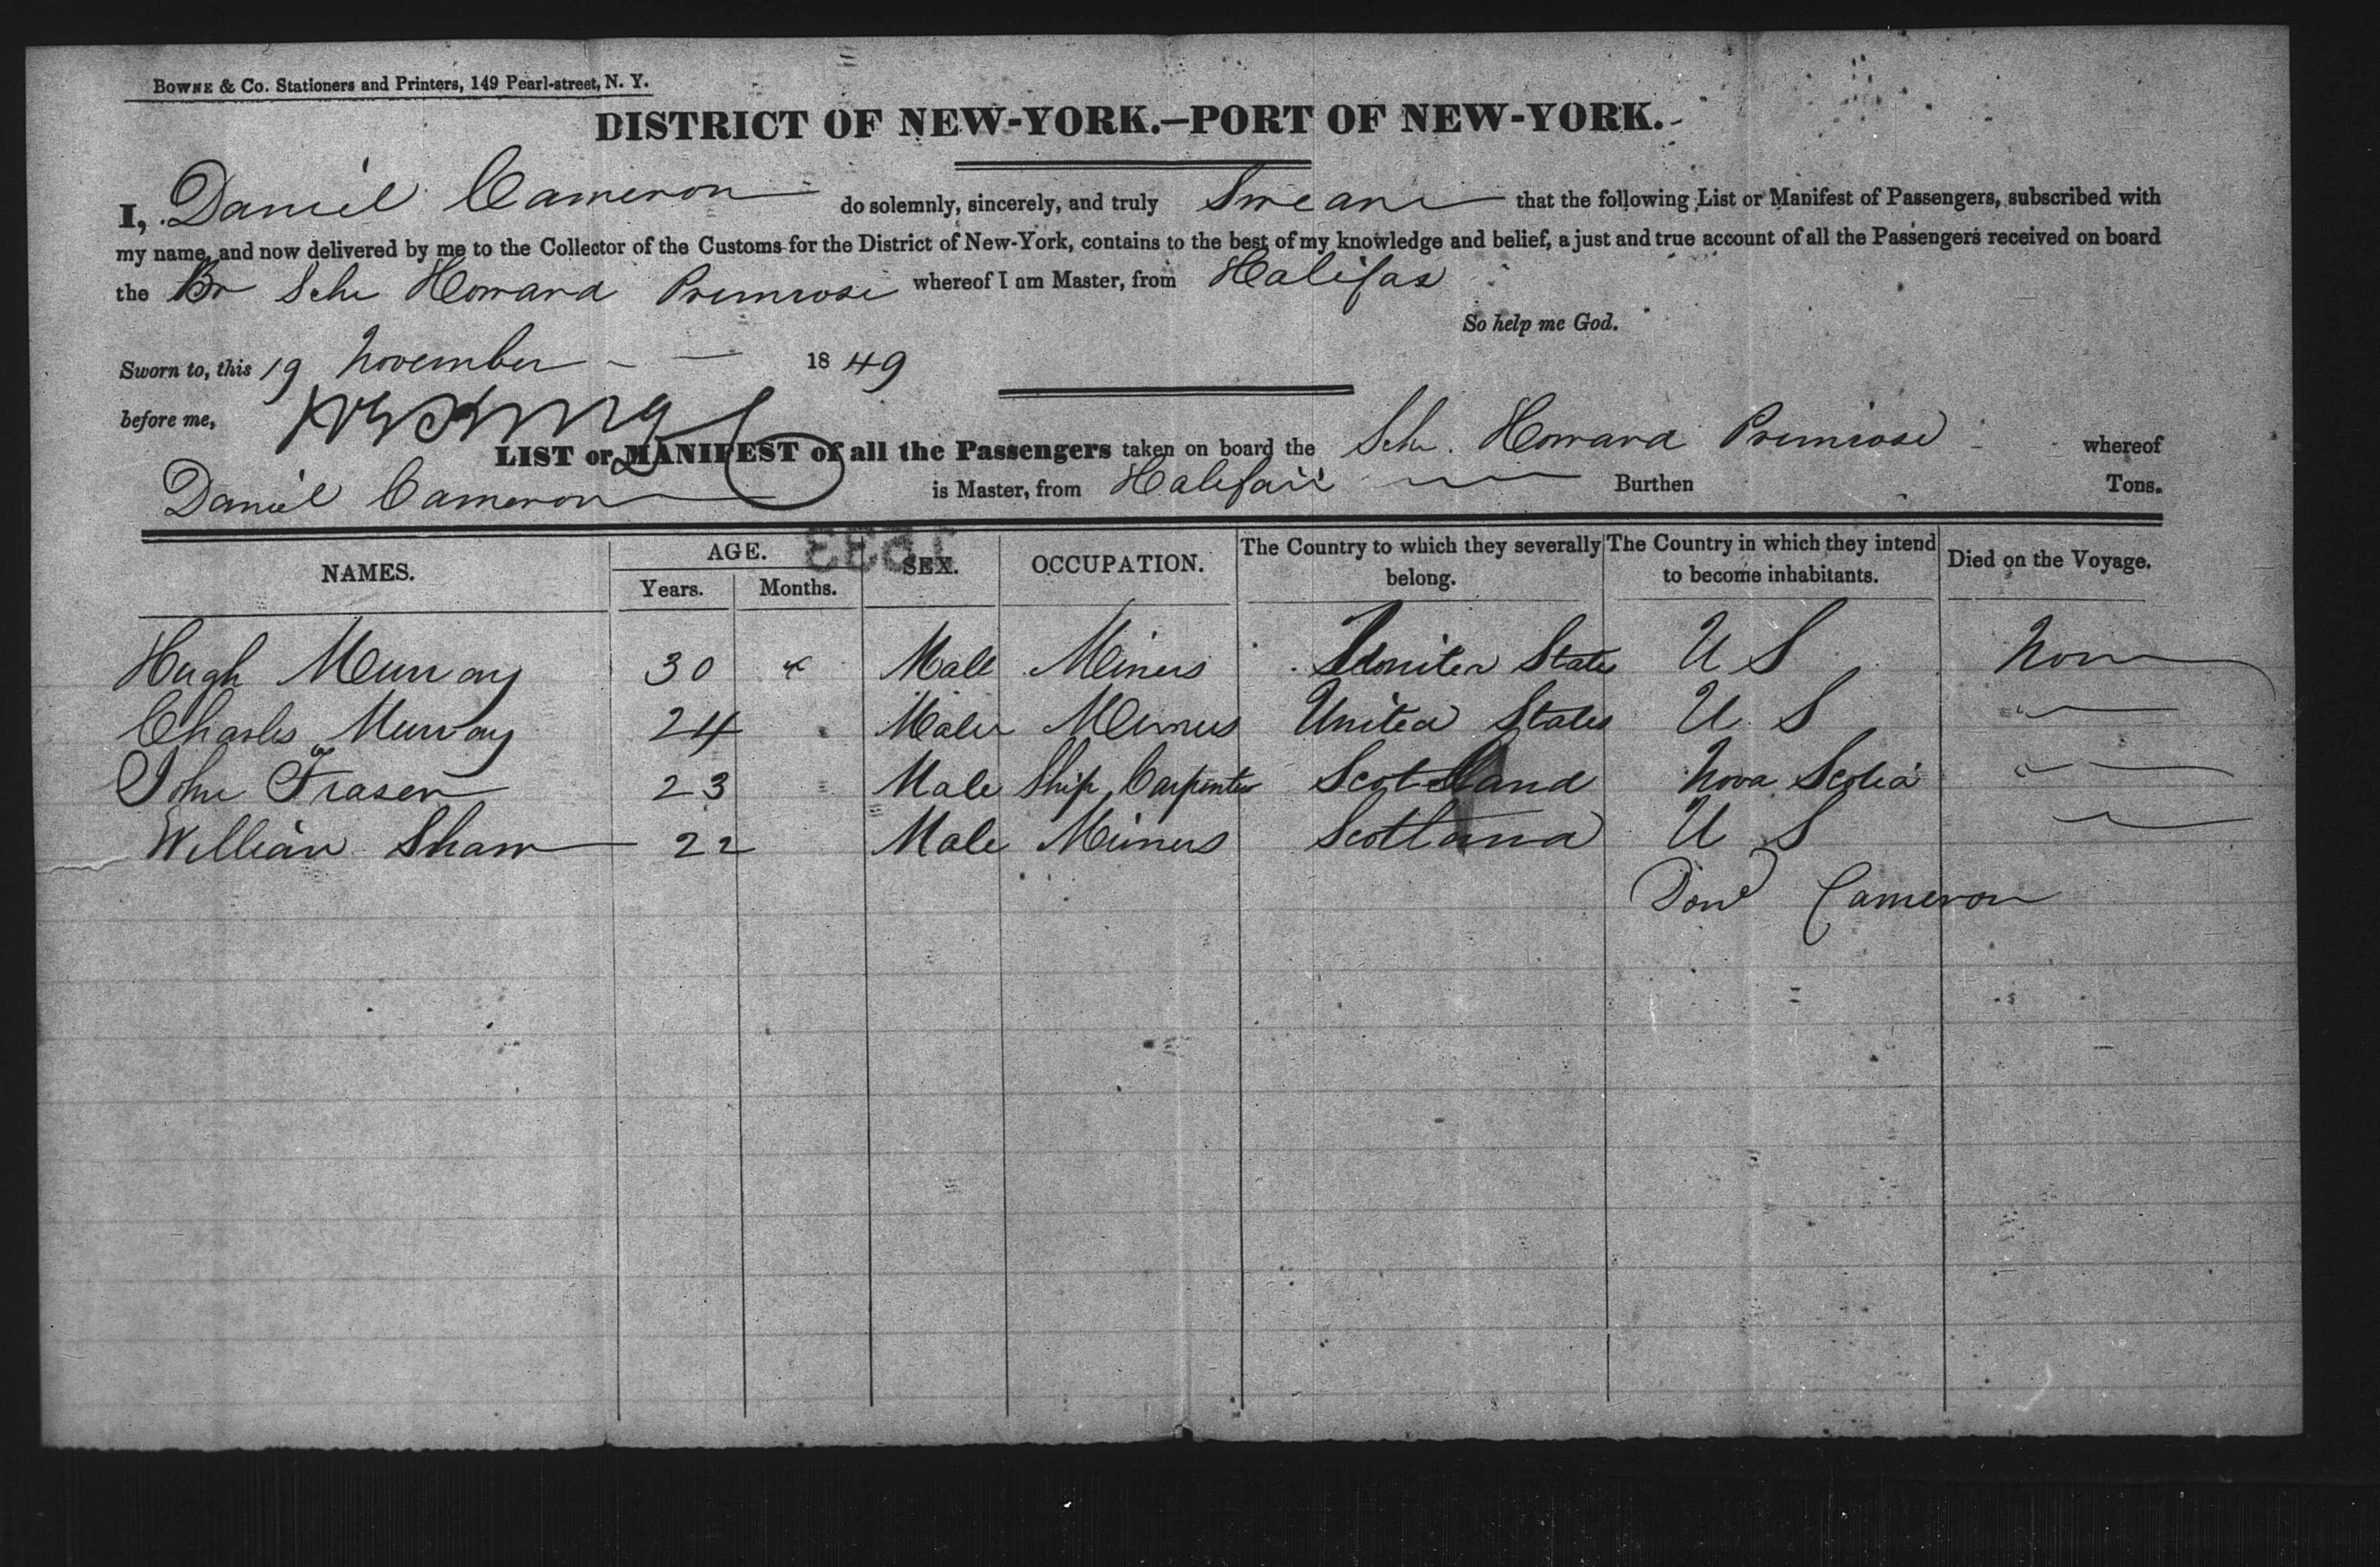 BOWNE & CO. Stationers and Printers, 149 Pearl-street, N. Y.
DISTRICT OF NEW-YORK.—PORT OF NEW-YORK.
I, Daniel Cameron do solemnly, sincerely, and truly Swear that the following List or Manifest of Passengers, subscribed with
my name, and now delivered by me to the Collector of the Customs for the District of New-York, contains to the best of my knowledge and belief, a just and true account of all the Passengers received on board
the Br Sch Howard Primrose whereof I am Master, from Halifax
So help me God.
Sworn to, this 19 November 1849
before me,
LIST or MANIFEST of all the Passengers taken on board the Sch. Howard Primrose whereof
Daniel Cameron is Master, from Halifax Burthen Tons.
NAMES. AGE. Years. Months. SEX. OCCUPATION. The Country to which they severally belong. The Country in which they intend to become inhabitants. Died on the Voyage.
Hugh Murray 30 Male Miners United States U S Non
Charles Murray 24 Male Miners United States U S "
John Fraser 23 Male Ship Carpenter Scotland Nova Scotia "
William Shaw 22 Male Miners Scotland U S
Dond Cameron